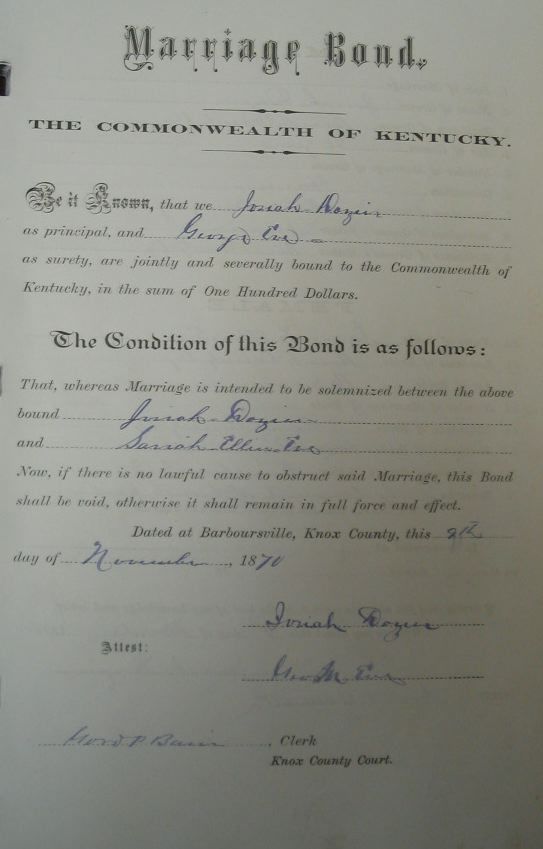 Marriage Bond.
THE COMMONWEALTH OF KENTUCKY.
Be it Known, that we Josiah Dozier
as principal, and George Eve
as surety, are jointly and severally bound to the Commonwealth of
Kentucky, in the sum of One Hundred Dollars.
The Condition of this Bond is as follows:
That, whereas Marriage is intended to be solemnized between the above
bound Josiah Dozier
and Sariah Ellen Eve
Now, if there is no lawful cause to obstruct said Marriage, this Bond
shall be void, otherwise it shall remain in full force and effect.
Dated at Barboursville, Knox County, this 9th
day of November, 1870
Josiah Dozier
Attest:
Geo M Eve
, Clerk
Knox County Court.